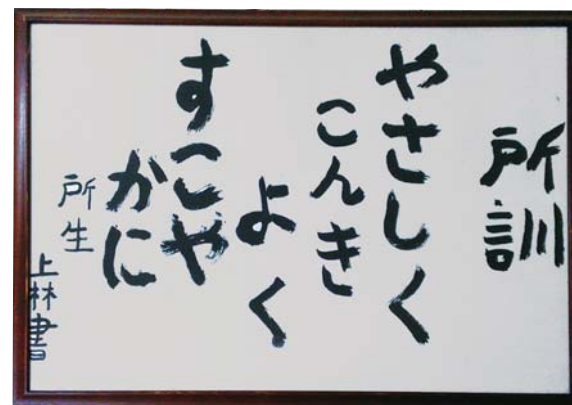 所訓
やさしく
こんき
よく
すこや
かに
所生
上林書